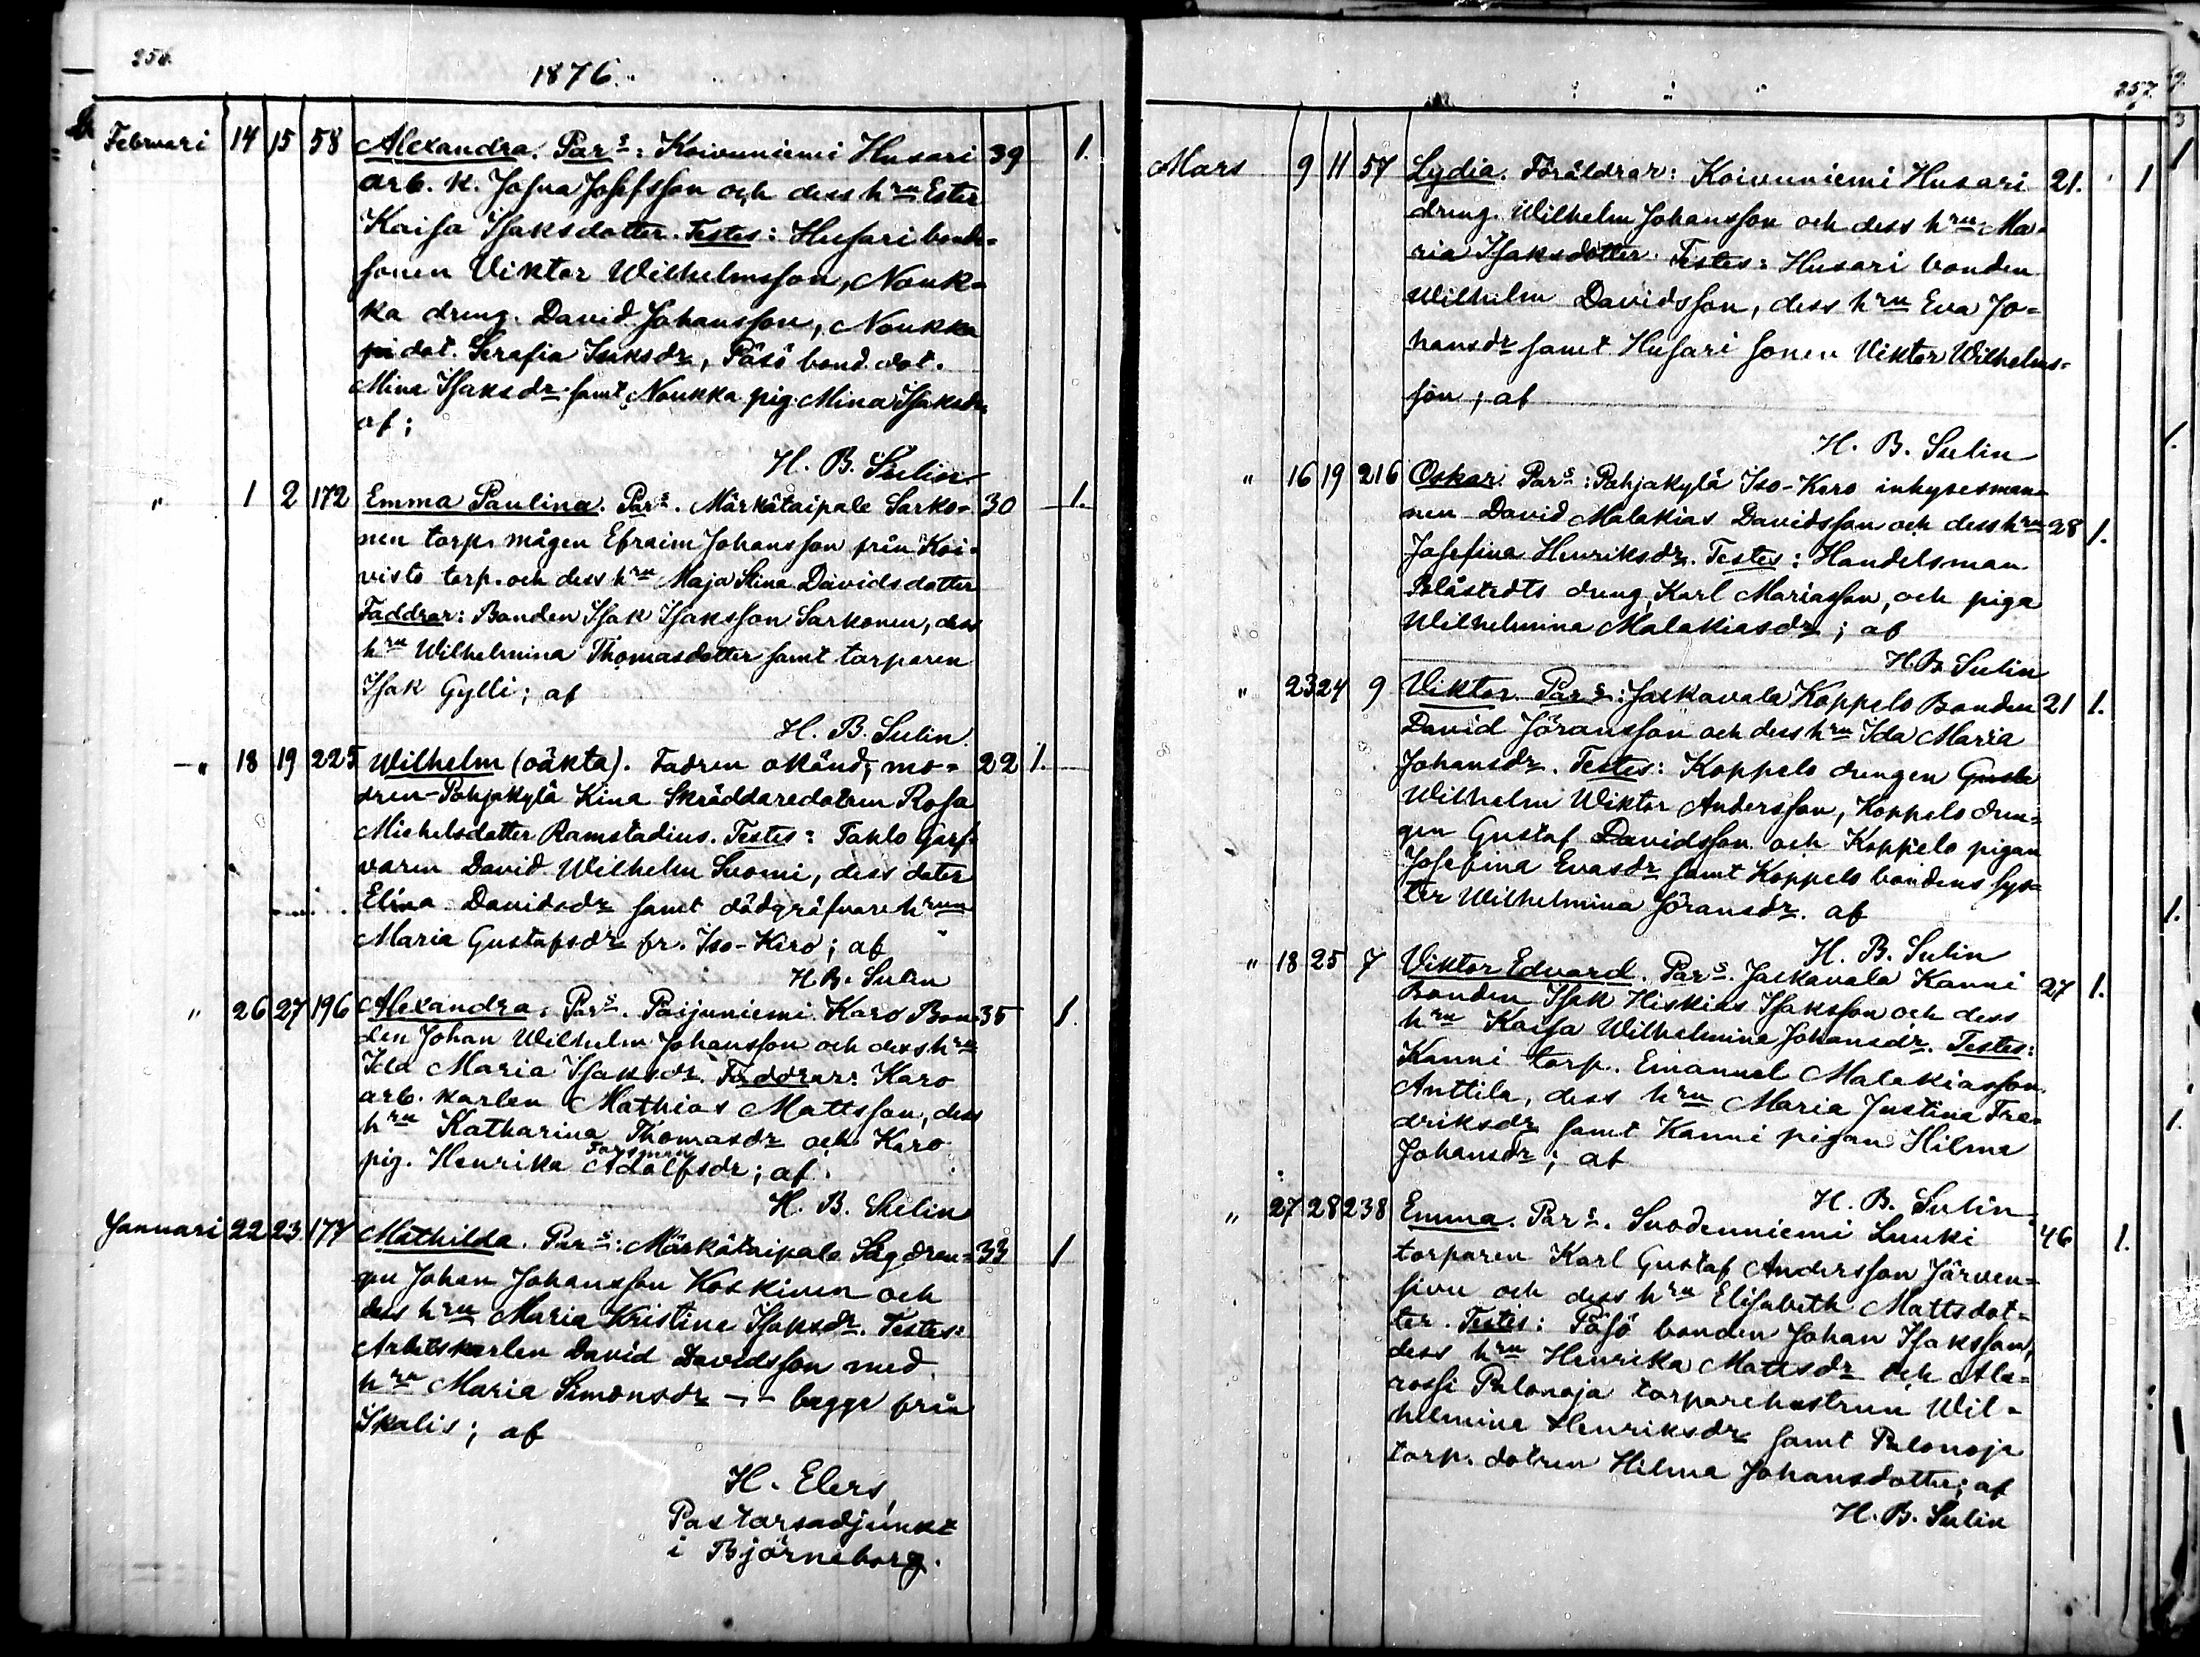 256.
1876.
Februari 14 15 58 Alexandra. Par<u>s</u>: Koivuniemi Husari 39 1.
arb. k. Josua Josefsson och dess hru Ester
Kaisa Isaksdotter. Testes: Husari bonde-
sonen Viktor Wilhelmsson, Nouk-
ka dreng. David Johansson, Noukka
dot. Serafia Isaksdr, Päsö bond. dot.
Mina Isaksdr samt Noukka pig. Mina Isaksdr
af;
H. B. Sulin
" 1 2 172 Emma Paulina. Pars. Märkätaipale Sarko- 30 1.
nen torp. mågen Efraim Johansson från Koi-
visto torp. och dess hru Maja Stina Davidsdotter
Faddrar: Bonden Isak Isaksson Sarkonen, dess
hru Wilhelmina Thomasdotter samt torparen
Isak Gylli; af
H. B. Sulin.
" 18 19 225 Wilhelm (oäkta). Fadren okänd; mo- 22 1.
dren Pohjakylä Kina Skräddaredotren Rosa
Michelsdotter Ramstadius. Testes: Tahlo Garf-
varen David Wilhelm Suomi, dess doter
Elina Davidsdr samt dödgräfvare hrun
Maria Gustafsdr fr. Iso-Kero; af
H. B. Sulin
" 26 27 196 Alexandra. Pars. Päijuniemi Karo Bon- 35 1.
den Johan Wilhelm Johansson och dess hru
Ida Maria Isaksdr. Faddrar: Karo
arb. karlen Mathias Mattsson, dess
hru Katharina Thomasdr och Karo
pig. Henrika Adolfsdr Forsman; af
H. B. Sulin
Januari 22 23 177 Mathilda. Pars: Märkätaipale Såg dren- 33 1
gen Johan Johansson Koskinen och
dess hru Maria Kristina Isaksdr. Testes:
Arbetskarlen David Davidsson med
hru Maria Simonsdr -,- begge från
Ikalis; af
H. Elers,
Pastorsadjunkt
i Björneborg.
257.
Mars 9 11 57 Lydia. Föräldrar: Koivuniemi Husari 21. 1
dreng. Wilhelm Johansson och dess hru Ma-
ria Isaksdotter. Testes: Husari bonden
Wilhelm Davidsson, dess hru Eva Jo-
hansdr samt Husari sonen Viktor Wilhelms-
son; af
H. B. Sulin
" 16 19 216 Oskar. Pars: Pohjakylä Iso-Kero inhysesman-
nen David Malakias Davidsson och dess hru 28 1.
Josefina Henriksdr. Testes: Handelsman
Blåstedts dreng, Karl Mariasson, och piga
Wilhelmina Malakiasdr; af
H. B. Sulin
" 23 24 9 Viktor. Pars: Jalkavala Koppelo Bonden 21 1.
David Jöransson och dess hru Ida Maria
Johansdr. Testes: Koppelo drengen
Wilhelm Wiktor Andersson, Koppelo dren-
gen Gustaf Davidsson och Koppelo pigan
Josefina Evasdr samt Koppelo bondens sys-
ter Wilhelmina Jöransdr. af
H. B. Sulin
" 18 25 7 Viktor Edvard. Pars. Jalkavala Kanni 27 1.
Bonden Isak Hiskias Isaksson och dess
hru Kaisa Wilhelmina Johansdr. Testes:
Kanni torp. Emanuel Malakiasson
Anttila, dess hru Maria Justina Fre-
driksdr samt Kanni pigan Hilma
Johansdr; af
H. B. Sulin
" 27 28 238 Emma. Pars. Suodenniemi Luuki 46 1.
torparen Karl Gustaf Andersson Järven-
sivu och dess hru Elisabeth Mattsdot-
ter. Testes: Päsö bonden Johan Isaksson,
dess hru Henrika Mattsdr och Ala-
rossi Palonoja torparehustrun Wil-
helmina Henriksdr samt Palonoja
torp. dotren Hilma Johansdotter; af
H. B. Sulin